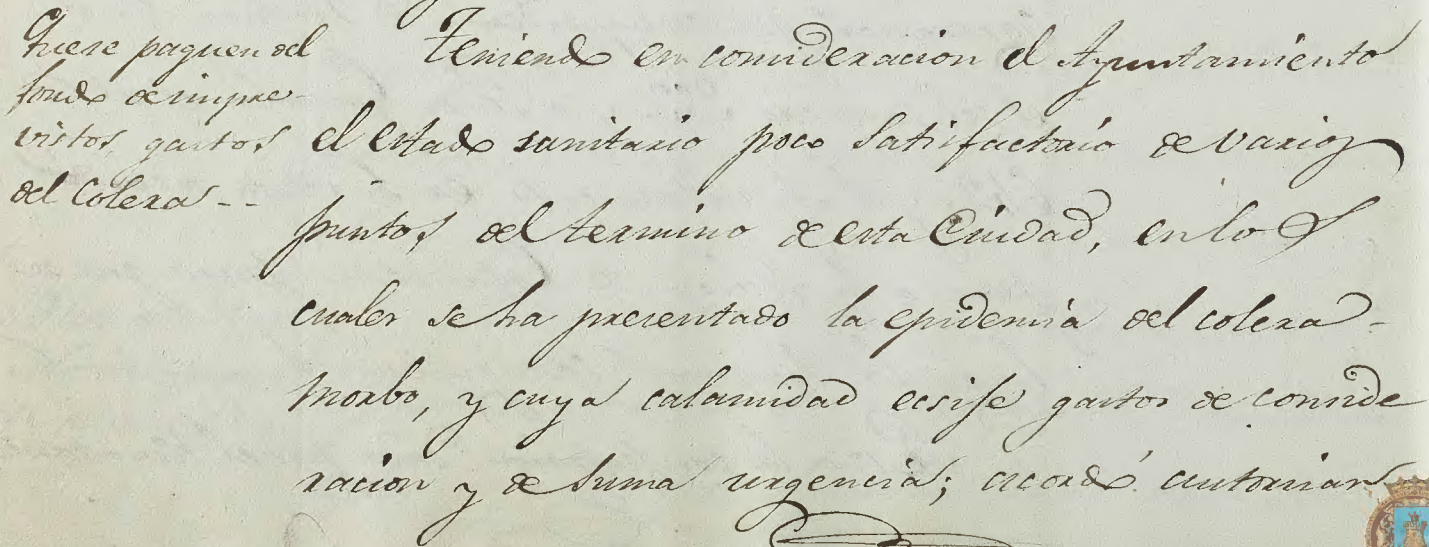 Que se paguen del
fondo de impre-
vistos, gastos
del Colera --
Teniendo en consideracion el Ayuntamiento
el estado sanitario poco satisfactorio de varios
puntos, del termino de esta Ciudad, en los
cuales se ha presentado la epidemia del colera-
morbo, y cuya calamidad ecsije gastos de conside
racion y de suma urgencia; acordó autorizar